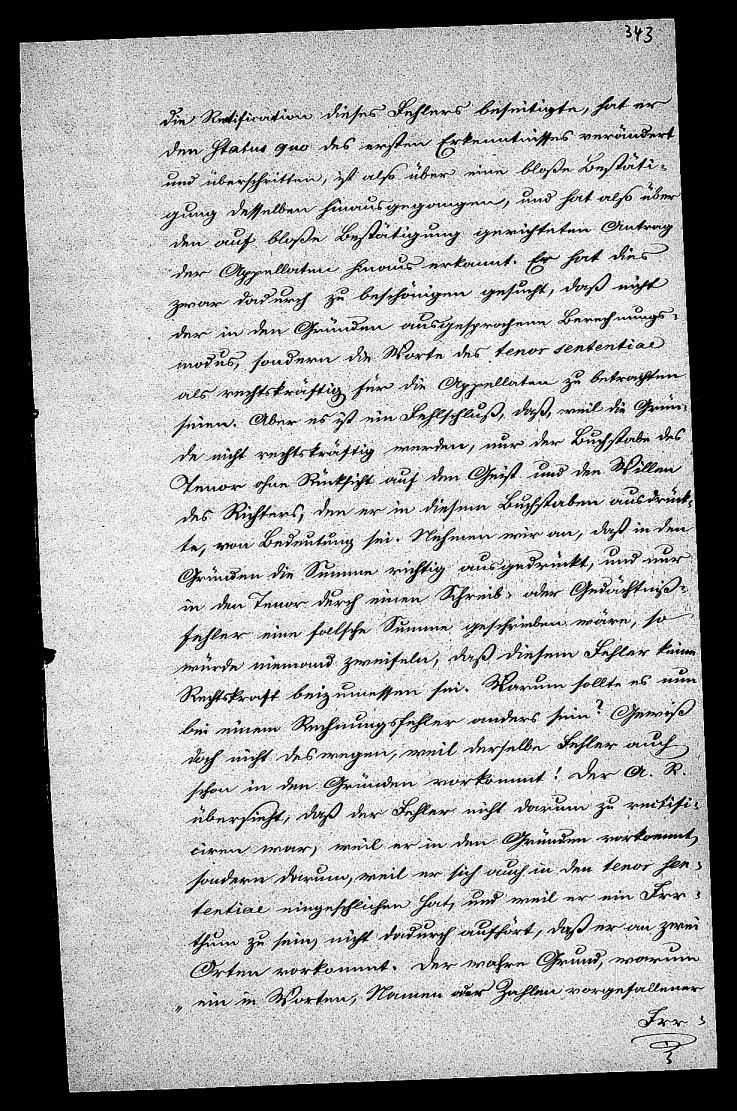 343
die Retification dieses Fehlers beseitigte, hat er
den Status quo des ersten Erkenntnisses verändert
und überschritten, ist also über eine bloße Bestäti-
gung desselben hinausgegangen, und hat also über
den auf bloße Bestätigung gerichteten Antrag
der Appellaten hinaus erkannt. Er hat dies
zwar dadurch zu beschönigen gesucht, daß nicht
der in den Gründen ausgesprochene Berechnungs-
modus, sondern die Worte des tenor sententiae
als rechtskräftig für die Appellaten zu betrachten
seien. Aber es ist ein Fehlschluß, daß, weil die Grün-
de nicht rechtskräftig werden, nur der Buchstabe des
Tenor ohne Rücksicht auf den Geist und den Willen
des Richters, den er in diesem Buchstaben ausdrück-
te, von Bedeutung sei. Nehmen wir an, daß in den
Gründen die Summe richtig ausgedrückt, und nur
in den Tenor durch einen Schreib- oder Gedächtniß-
fehler eine falsche Summe geschrieben wäre, so
würde niemand zweifeln, daß diesem Fehler keine
Rechtskraft beizumessen sei. Warum sollte es nun
bei einem Rechnungsfehler anders sein? Gewiß
doch nicht deswegen, weil derselbe Fehler auch
schon in den Gründen vorkommt! Der A. R.
übersieht, daß der Fehler nicht darum zu rectifi-
ciren war, weil er in den Gründen vorkommt,
sondern darum, weil er sich auch in den tenor sen-
tentiae eingeschlichen hat, und weil er ein Irr-
thum zu sein, nicht dadurch aufhört, daß er an zwei
Orten vorkommt. Der wahre Grund, warum
„ ein in Worten, Namen oder Zahlen vorgefallener
Irr-